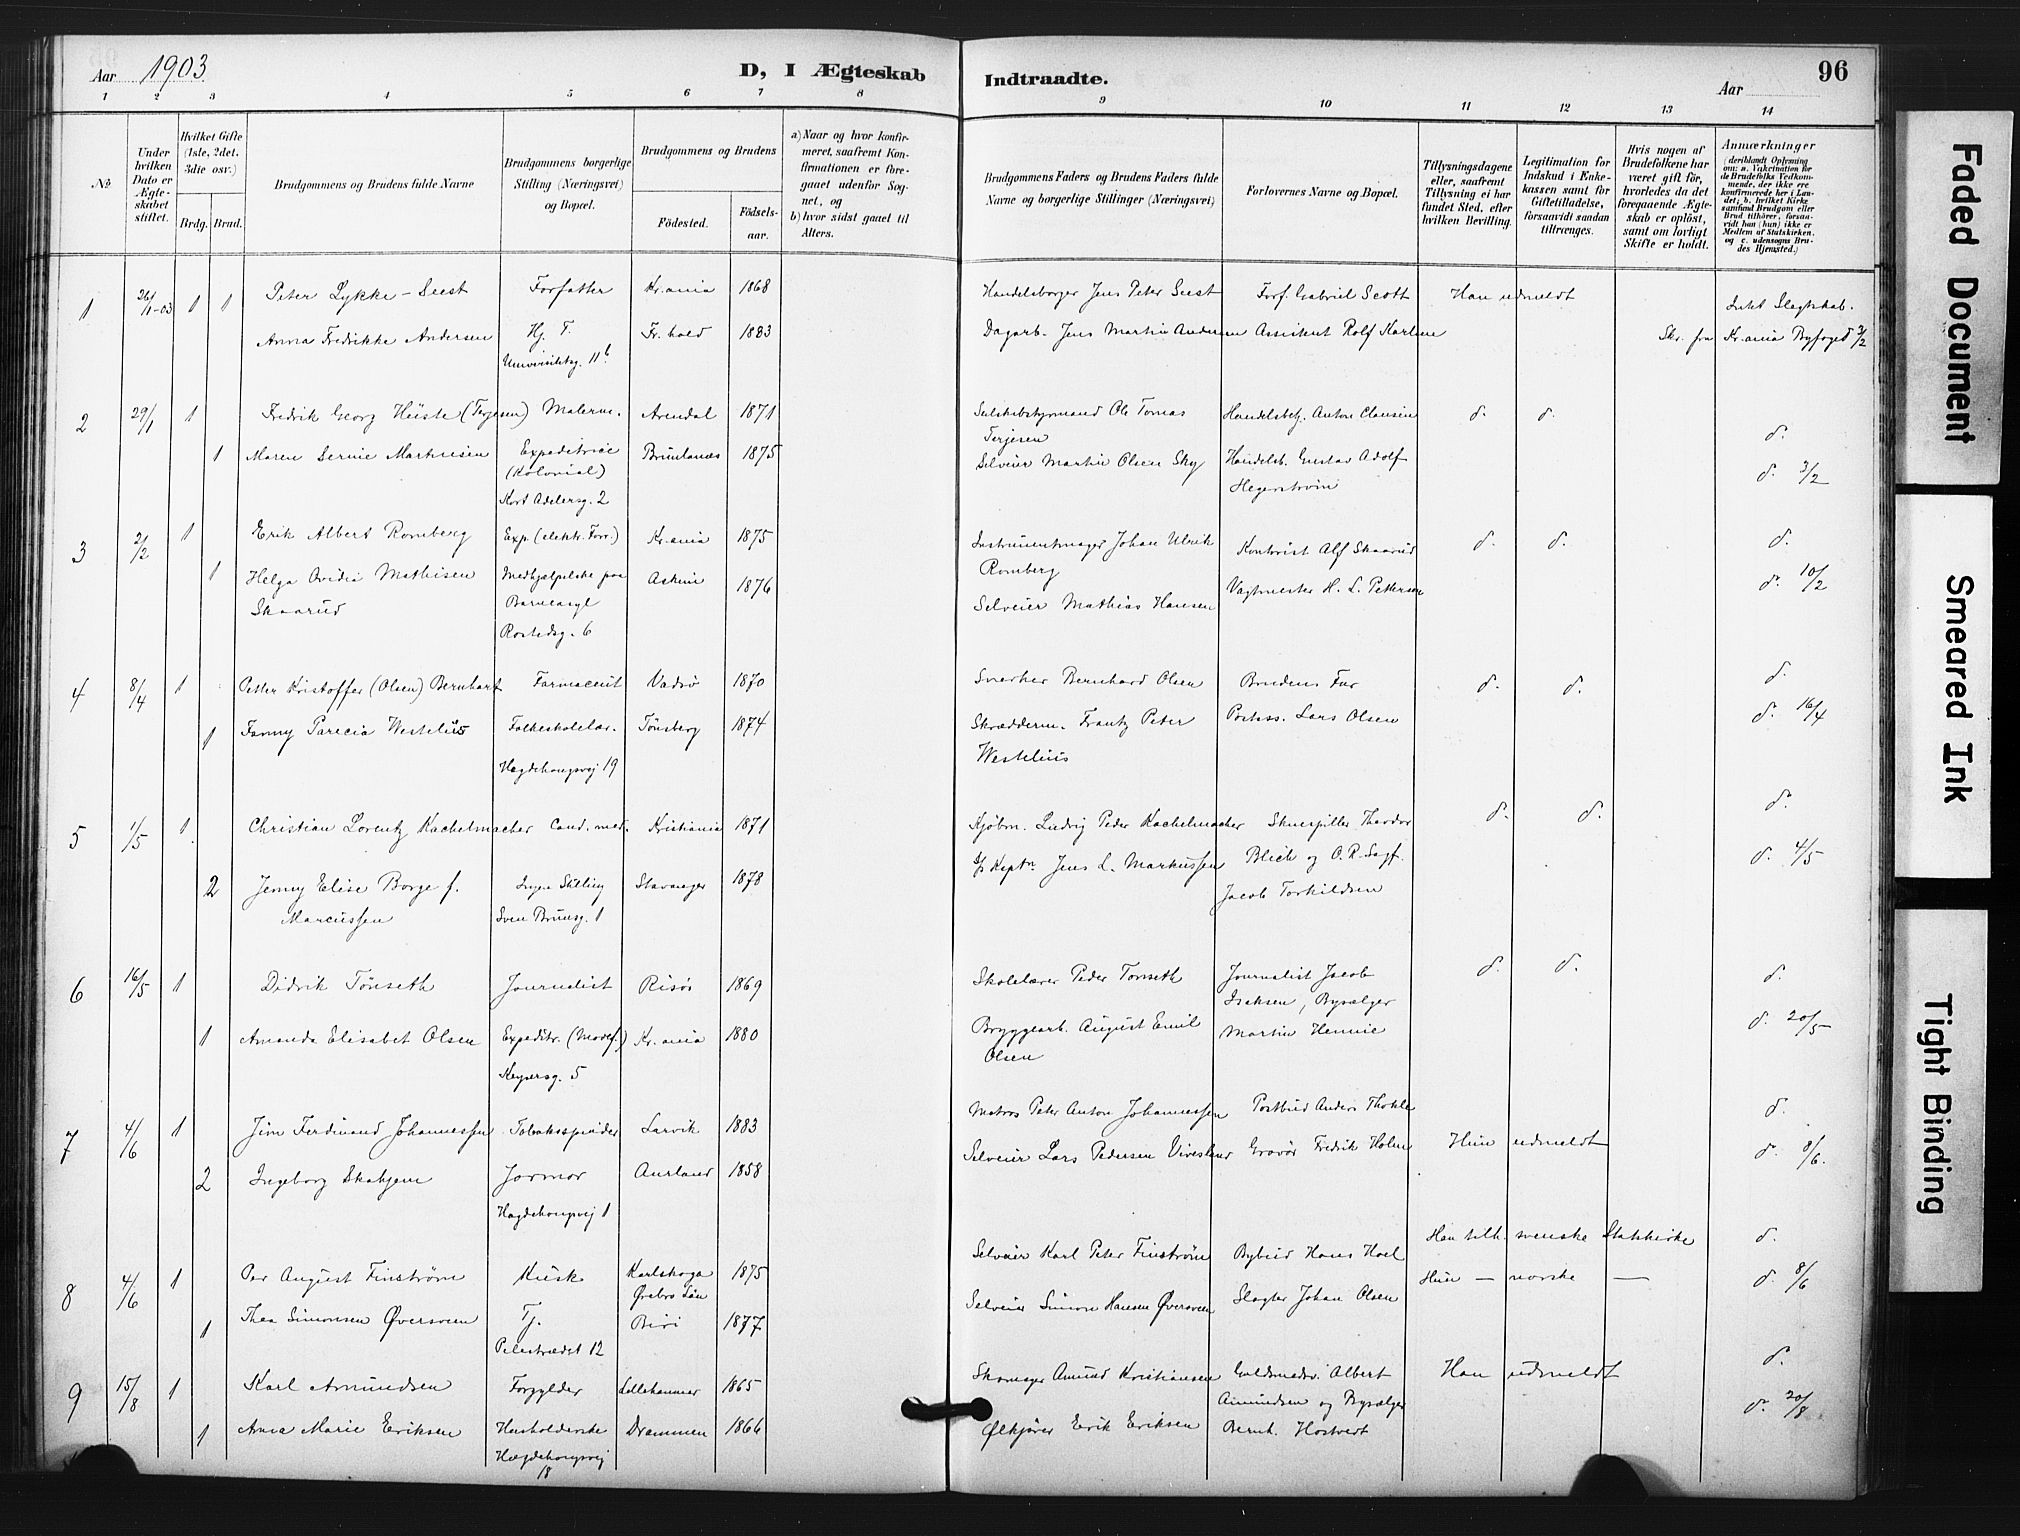 Aar 1903
D, I Ægteskab
Indtraadte.
Aar
96
1 2 3 4 5 6 7 8
9 10 11 12 13 14
No.
Under hvilken Dato er Ægteskabet stiftet.
Hvilket Gifte (1ste, 2det, 3die osv.)
Brdg. Brud.
Brudgommens og Brudens fulde Navne
Brudgommens borgerlige Stilling (Næringsvei) og Bopæl.
Brudgommens og Brudens
Fødested.
Fødselsaar.
a) Naar og hvor konfirmeret, saafremt Konfirmationen er foregaaet udenfor Sognet, og
b) hvor sidst gaaet til Alters.
Brudgommens Faders og Brudens Faders fulde Navne og borgerlige Stillinger (Næringsvei)
Forlovernes Navne og Bopæl.
Tillysningsdagene eller, saafremt Tillysning ei har fundet Sted, efter hvilken Bevilling.
Legitimation for Indskud i Enkekassen samt for Giftetilladelse, forsaavidt saadan tiltrænges.
Hvis nogen af Brudefolkene har været gift før, hvorledes da det foregaaende Ægteskab er opløst, samt om lovligt Skifte er holdt.
Anmærkninger
(deriblandt Oplysning om: a. Vakcination for de Brudefolks Vedkommende, der ikke ere konfirmerede her i Landet; b. hvilket Kirkesamfund Brudgom eller Brud tilhører, forsaavidt han (hun) ikke er Medlem af Statskirken, og c. udensogns Brudes Hjemsted.)
1 26/1-03 1 1 Peter Lykke-Seest Forfatter Kr.ania 1868 Handelsborger Jens Peter Seest Forf. Gabriel Scott Han udmeldt Intet Slegtskab.
Anna Fredrikke Andersen Hj. T. Fr.hald 1883 Dagarb. Jens Martin Andersen Assistent Rolf Karlsen Skr. fra Kr.ania Byfoged 3/2
Universitetsg. 11b
2 29/1 1 Fredrik Georg Hüste (Terjesen) Malerm. Arendal 1871 Selskabstyrmand Ole Tomas Handelsbetj. Anton Clausen d. d.
Terjesen d.
1 Maren Sernie Martinsen Expeditrice Brunlanes 1875 Selveier Martin Olsen Sky Handelsb. Gustav Adolf d. 3/2
(Kolonial) Hegerstrøm
Kort Adelersg. 2
3 2/2 1 Erik Albert Romberg Exp (elektr. Forr.) Kr.ania 1875 Instrumentmager Johan Ulrik Kontorist Alf Skaarud d. d. d.
Romberg
1 Helga Ovidia Mathisen Medhjælpelske paa Askim 1876 Selveier Mathias Hansen Vagtmester H. L. Pettersen d. 10/2
Skaarud Barneasyl
Rostedsg. 6
4 8/4 1 Petter Kristoffer (Olsen) Bernhart Farmaceut Vadsø 1870 Snerker Bernhard Olsen Brudens Far d. d. d.
1 Fanny Parecia Westelius Folkeskolelær. Tønsberg 1874 Skrædderm. Frantz Peter Postass. Lars Olsen d. 16/4
Hegdehaugsvej 19 Westelius
5 1/5 1 Christian Lorentz Kachelmacher Cand. med. Kristiania 1871 Kjøbm. Ludvig Peder Kachelmacher Skuespiller Thordor d. d. d.
2 Jenny Elise Borge f. Ingen Stilling Stavanger 1878 Kaptn Jens L. Markussen Blich og O.R.Sagf. d. 4/5
Marcussen Sven Brunsg. 1 Jacob Torkildsen
6 16/5 1 Didrik Tönseth Journalist Risør 1869 Skolelærer Peder Tonseth Journalist Jacob d. d. d.
Isaksen, Bysælger
1 Amanda Elisabet Olsen Expeditr. (Modef.) Kr.ania 1880 Bryggearb. August Emil Martin Hennie d. 20/5
Keysersg. 5 Olsen
7 4/6 1 Jim Ferdinand Johannessen Tobaksspinder Larvik 1883 Matros Peter Anton Johannessen Postbud Anders Thokle d.
2 Ingeborg Skahjem Jormor Aurland 1858 Selveier Lars Pedersen Vivesland Gravør Fredrik Holm Hun udmeldt d. 8/6.
Hegdehaugsvej 1
8 4/6 1 Per August Finström Kusk Karlskoga 1875 Selveier Karl Peter Finström Bybud Hans Hoel Han tilh. svenske Statskirke d.
Ørebro Län
1 Thea Simonsen Øversveen Tj. Biri 1877 Selveier Simon Hansen Øversveen Slagter Johan Olsen Hun — norske — d. 8/6
Pilestrædet 12
9 15/8 1 Karl Amundsen Forgylder Lillehammer 1865 Skomager Amund Kristiansen Guldsmedsv. Albert Han udmeldt d.
Amundsen og Bysælger
1 Anna Marie Eriksen Husholderske Drammen 1866 Ølkjører Erik Eriksen Bernh. Hostvedt d. 20/8
Hegdehaugsvej
18
Faded Document
Smeared Ink
Tight Binding